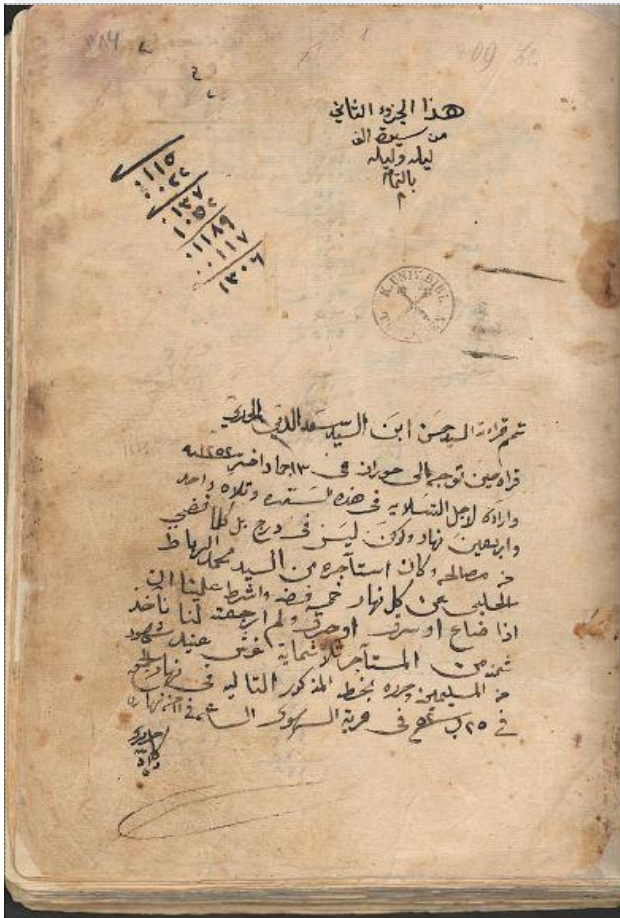 هذا الجزء الثاني
من سيرة الف
ليله وليله
بالتمام
م
١١٥
٠٢٢
١٣٧
١٠٥٢
١١٨٩
٠١١٧
١٣٠٦
K. UNIV. BIBL.
تمم قراءة السيد حسن ابن السيد سعد الدين
قراه حين توجه الى حوران في ١٣ جماد اخر سنة ١٢٥٢
واراده لاجل التسلايه في هذه السفره وتلاه واحد
واربعين نهار ولاكن ليس في درج بل كلما فضي
من مصالحه وكان استأجره من السيد محمد الرباط
الحلبي عن كل نهار خمس فضه واشرط علينا ان
اذا ضاع او سرق او حرق ولم ارجعته لنا نأخذ
ثمنه من المستأجر ثلاثماية غرش عنيد شهود
من المسليمين وحرره بخطه المذكور التاليه في نهار
في ٢٥ في قرية السهوى